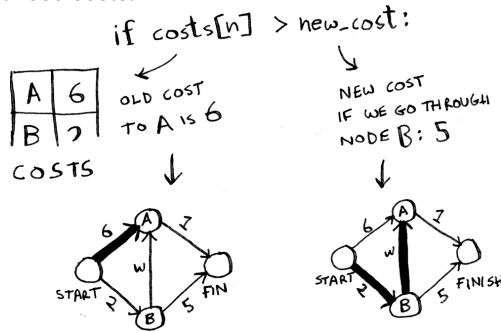 if costs[n] > new_cost:
A 6
B 2
COSTS
OLD COST
TO A IS 6
NEW COST
IF WE GO THROUGH
NODE B: 5
6
A
1
W
START
2
B
5
FIN
6
A
1
W
START
2
B
5
FINISH